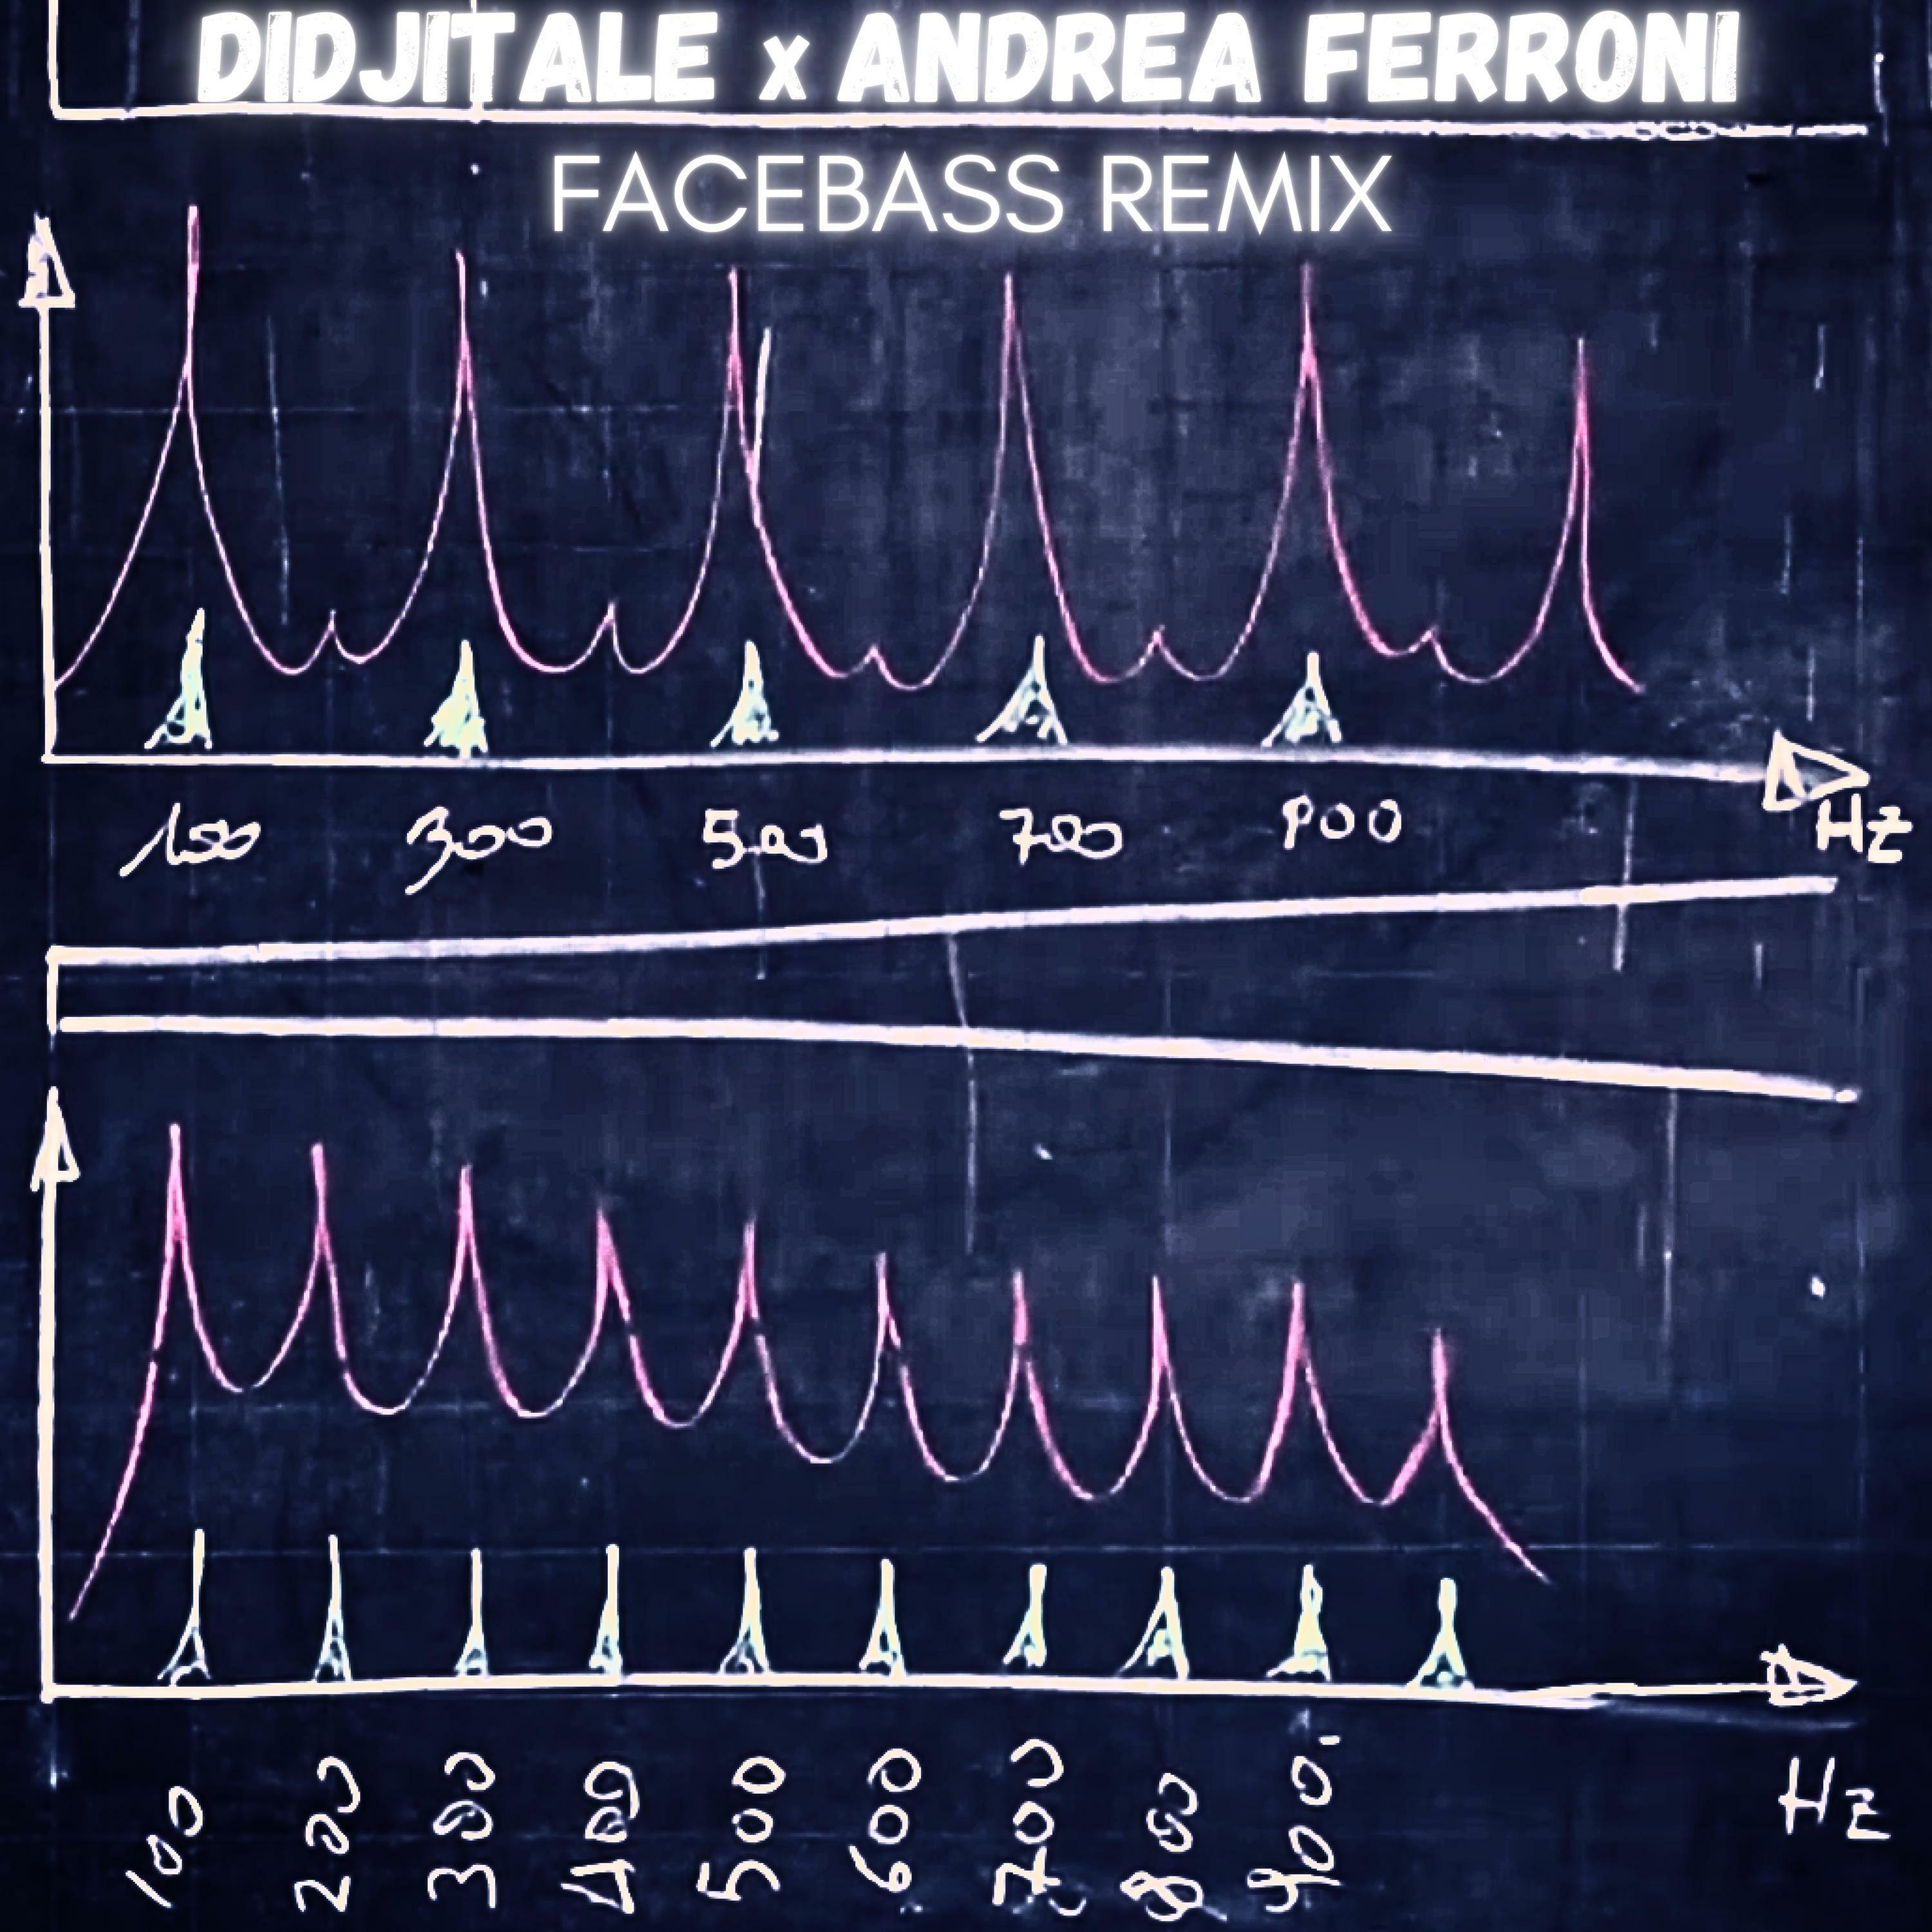 DIDJITALE x ANDREA FERRONI
FACEBASS REMIX
100 300 500 700 900
Hz
100 200 300 400 500 600 700 800 900
Hz